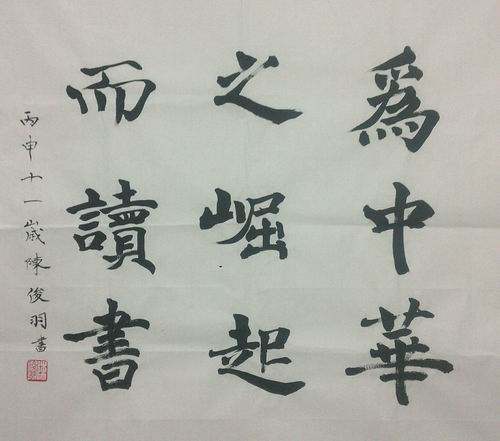 為中華
之崛起
而讀書
丙申十一歲陳俊羽書